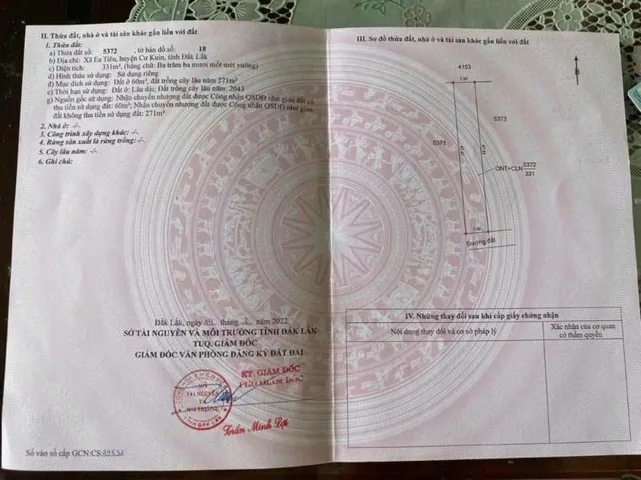 II. Thửa đất, nhà ở và tài sản khác gắn liền với đất
1. Thửa đất:
a) Thửa đất số: 5372, tờ bản đồ số: 18
b) Địa chỉ: Xã Ea Tiêu, huyện Cư Kuin, tỉnh Đắk Lắk
c) Diện tích: 331m², (bằng chữ: Ba trăm ba mươi mốt mét vuông)
d) Hình thức sử dụng: Sử dụng riêng
đ) Mục đích sử dụng: Đất ở 60m², đất trồng cây lâu năm 271m²
e) Thời hạn sử dụng: Đất ở: Lâu dài; Đất trồng cây lâu năm: 2043
g) Nguồn gốc sử dụng: Nhận chuyển nhượng đất được Công nhận QSDĐ như giao đất có
thu tiền sử dụng đất: 60m²; Nhận chuyển nhượng đất được Công nhận QSDĐ như giao
đất không thu tiền sử dụng đất: 271m²
2. Nhà ở: -/-
3. Công trình xây dựng khác: -/-
4. Rừng sản xuất là rừng trồng: -/-
5. Cây lâu năm: -/-
6. Ghi chú:
Đắk Lắk, ngày tháng năm 2022
SỞ TÀI NGUYÊN VÀ MÔI TRƯỜNG TỈNH ĐẮK LẮK
TUQ. GIÁM ĐỐC
GIÁM ĐỐC VĂN PHÒNG ĐĂNG KÝ ĐẤT ĐAI
KT. GIÁM ĐỐC
PHÓ GIÁM ĐỐC
SỞ
TÀI NGUYÊN
VÀ
MÔI TRƯỜNG
TỈNH ĐẮK LẮK
Trần Minh Lợi
Số vào sổ cấp GCN:CS
III. Sơ đồ thửa đất, nhà ở và tài sản khác gắn liền với đất
4153
5371
5373
ONT+CLN 5372
331
Đường đất
IV. Những thay đổi sau khi cấp giấy chứng nhận
Nội dung thay đổi và cơ sở pháp lý
Xác nhận của cơ quan
có thẩm quyền